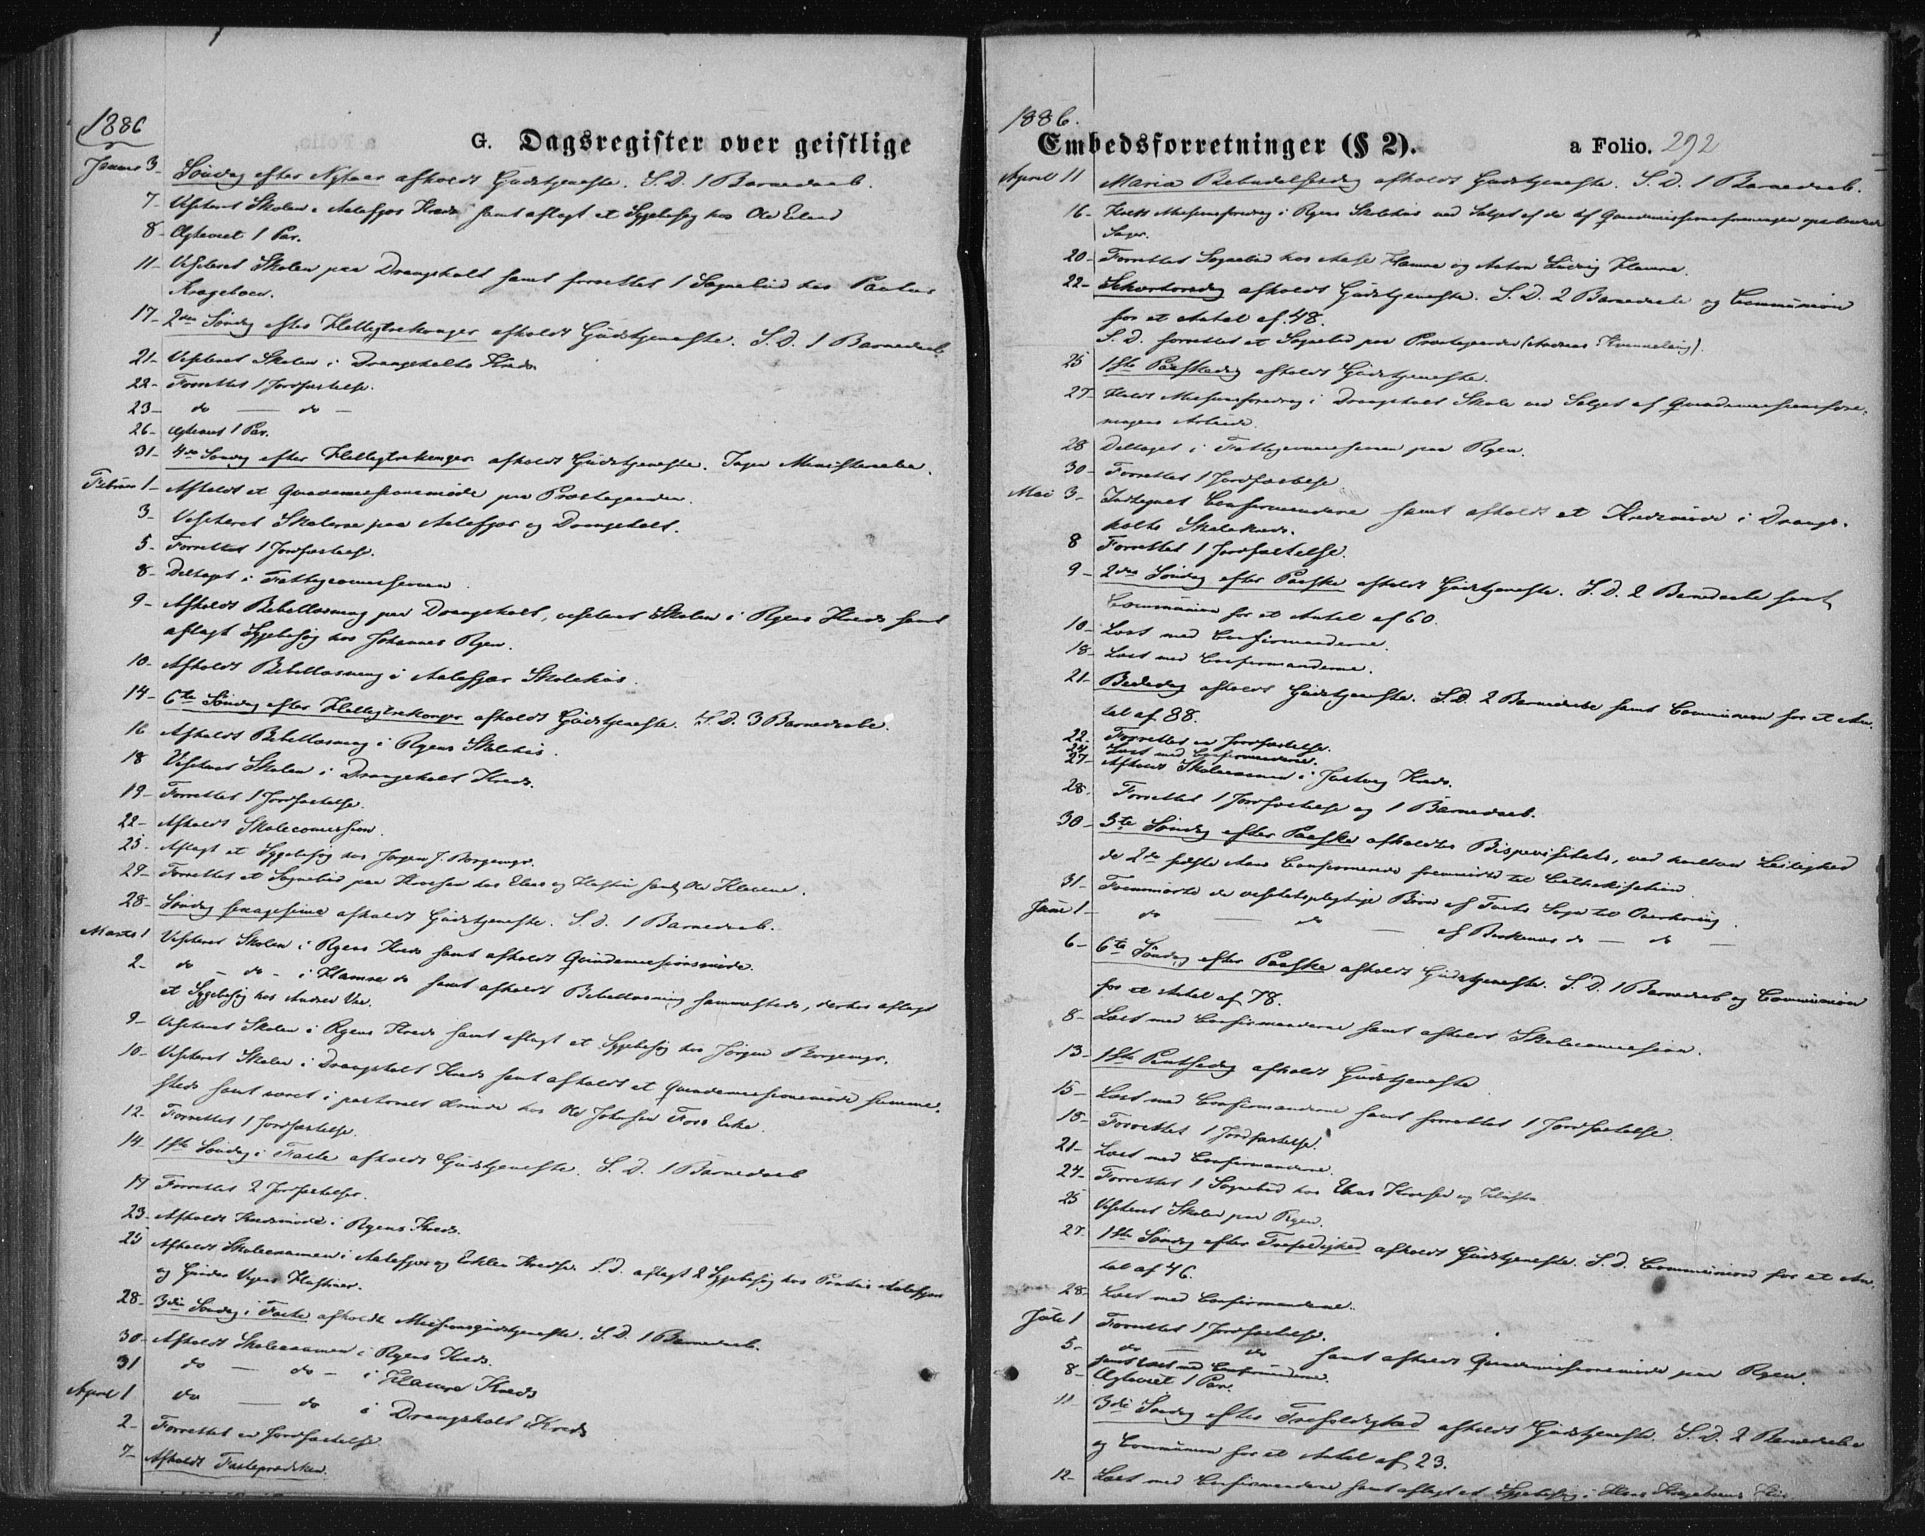 1886
G. Dagsregister over geistlige
Januar 3- Søndag efter Nytaar afholdt Gudstjeneste. S.D. 1 Barnedaab.
7- Visiteret Skolen i Aalefjær Kreds samt aflagt et Sygebesøg hos Ole Eland
8- Ægteviet 1 Par.
11- Visiteret Skolen paa Drangsholt samt forrettet 1 Sognebud hos
Krageboen.
17- 2den Søndag efter Helligtrekonger afholdt Gudstjeneste. S.D. 1 Barnedaab
21- Visiteret Skolen i Drangsholts Kreds
22- Forrettet 1 Jordfæstelse.
23- do — do -
26- Ægteviet 1 Par.
31- 4de Søndag efter Helligtrekonger afholdt Gudstjeneste. Ingen Ministerialia.
Februar 1- Afholdt et Qvindemissionsmøde paa Præstegaarden.
3- Visiteret Skolerne paa Aalefjær og Drangsholt.
5- Forrettet 1 Jordfæstelse.
8- Deltaget i Fattigcommissionen.
9- Afholdt Bibellæsning paa Drangsholt, visiteret Skolen i Ryens Kreds samt
aflagt Sygebesøg hos Johannes Ryen.
10- Afholdt Bibellæsning i Aalefjær Skolehus.
14- 6te Søndag efter Helligtrekonger afholdt Gudstjeneste. S.D. 3 Barnedaab.
16 Afholdt Bibellæsning i Ryens Skolehus.
18 Visiteret Skolen i Drangsholt Kreds.
19- Forrettet 1 Jordfæstelse.
22- Afholdt Skolecommission.
23- Aflagt et Sygebesøg hos Jørgen J. Borgengr.
27- Forrettet et Sognebud paa hos Elias og samt Ole
28- Søndag sexagesima afholdt Gudstjeneste. S.D. 1 Barnedaab.
Marts 1 Visiteret Skolen i Ryens Kreds samt afholdt Qvindemissionsmøde.
2- do - do - i Hamre do samt afholdt Bibellæsning sammesteds, derhos aflagt
et Sygebesøg hos Anders Vee.
9- Visiteret Skolen i Ryens Kreds samt aflagt et Sygebesøg hos Jørgen Borgengr.
10- Visiteret Skolen i Drangsholt Kreds samt afholdt et Qvindemissionsmøde samme-
steds samt været i pastoralt Ærinde hos Ole Johnsen Foss Eie.
12- Forrettet 1 Jordfæstelse.
14- 1ste Søndag i Faste afholdt Gudstjeneste. S.D. 1 Barnedaab
17 Forrettet 2 Jordfæstelser.
23- Afholdt Kredsmøde i Ryens Kreds.
25 Afholdt Skoleexamen i Aalefjær og Kreds. S.D. aflagt 2 Sygebesøg hos Aalefjær
og
28- 3die Søndag i Faste afholdt Missionsgudstjeneste. S.D. 1 Barnedaab.
30- Afholdt Skoleexamen i Ryens Kreds.
31 do — do - i Hamre Kreds
April 1 do — do i Drangsholt Kreds
2- Forrettet en Jordfæstelse
7- Afholdt Fasteprædiken.
1886.
Embedsforretninger (§ 2). a Folio. 292
April 11 Mariæ Bebudelsesdag afholdt Gudstjeneste. S.D. 1 Barnedaab.
16- Holdt Missionsforedrag i Ryens Skolehus ved Salget af de af Qvindemissionsforeningen oparbeidede
Sager.
20- Forrettet Sognebud hos Aase Hamre og Anton Ludvig Hamre.
22- Skjærtorsdag afholdt Gudstjeneste. S.D. 2 Barnedaab og Communion
for et Antal af 48.
S.D. forrettet et Sognebud paa Præstegaarden (Andreas ).
25 1ste Paaskedag afholdt Gudstjeneste.
27- Holdt Missionsforedrag i Drangsholt Skole ved Salget af Qvindemissionsfore-
ningens Arbeide.
28 Deltaget i Fattigcommissionen paa Ryen.
30- Forrettet 1 Jordfæstelse
Mai 3- Indtegnet Confirmanderne samt afholdt et Kredsmøde i Drangs-
holts Skolekreds.
8 Forrettet 1 Jordfæstelse.
9- 2den Søndag efter Paaske afholdt Gudstjeneste. S.D. 2 Barnedaab samt
Communion for et Antal af 60.
10- Læst med Confirmanderne.
18- Læst med Confirmanderne.
21- Bededag afholdt Gudstjeneste. S.D. 2 Barnedaab samt Communion for et An-
tal af 88.
22- Forrettet en Jordfæstelse.
24 Læst med Confirmanderne.
27- Afholdt Skoleexamen i Justvig Kreds.
28- Forrettet 1 Jordfæstelse og 1 Barnedaab.
30- 5te Søndag efter Paaske afholdtes Bispevisitats, ved hvilken Leilighed
de 2de sidste Aars Confirmerede fremmødte til Cathekisation
31- Fremmødte de visitatspligtige Børn af Tveits Sogn til Overhøring.
Juni 1- do — do — af Birkenes do — do —
6- 6te Søndag efter Paaske afholdt Gudstjeneste. S.D. 1 Barnedaab og Communion
for et Antal af 78.
8- Læst med Confirmanderne samt afholdt Skolecommission.
13- 1ste Pintsedag afholdt Gudstjeneste
15- Læst med Confirmanderne samt forrettet 1 Jordfæstelse.
18- Forrettet 1 Jordfæstelse.
21- Læst med Confirmanderne.
24- Forrettet 1 Sognebud hos Elias
25 Visiteret Skolen paa Ryen.
27- 1ste Søndag efter Trefoldighed afholdt Gudstjeneste. S.D. Communion for et An-
tal af 46.
28- Læst med Confirmanderne.
Juli 1 Forrettet 1 Jordfæstelse.
5- do — do samt afholdt Qvindemissionsmøde paa Ryen.
samt læst med Confirmanderne.
8- Ægteviet 1 Par.
11 3die Søndag efter Trefoldighed afholdt Gudstjeneste. S.D. 2 Barnedaab
og Communion for et Antal af 23.
12- Læst med Confirmanderne samt aflagt et Sygebesøg i